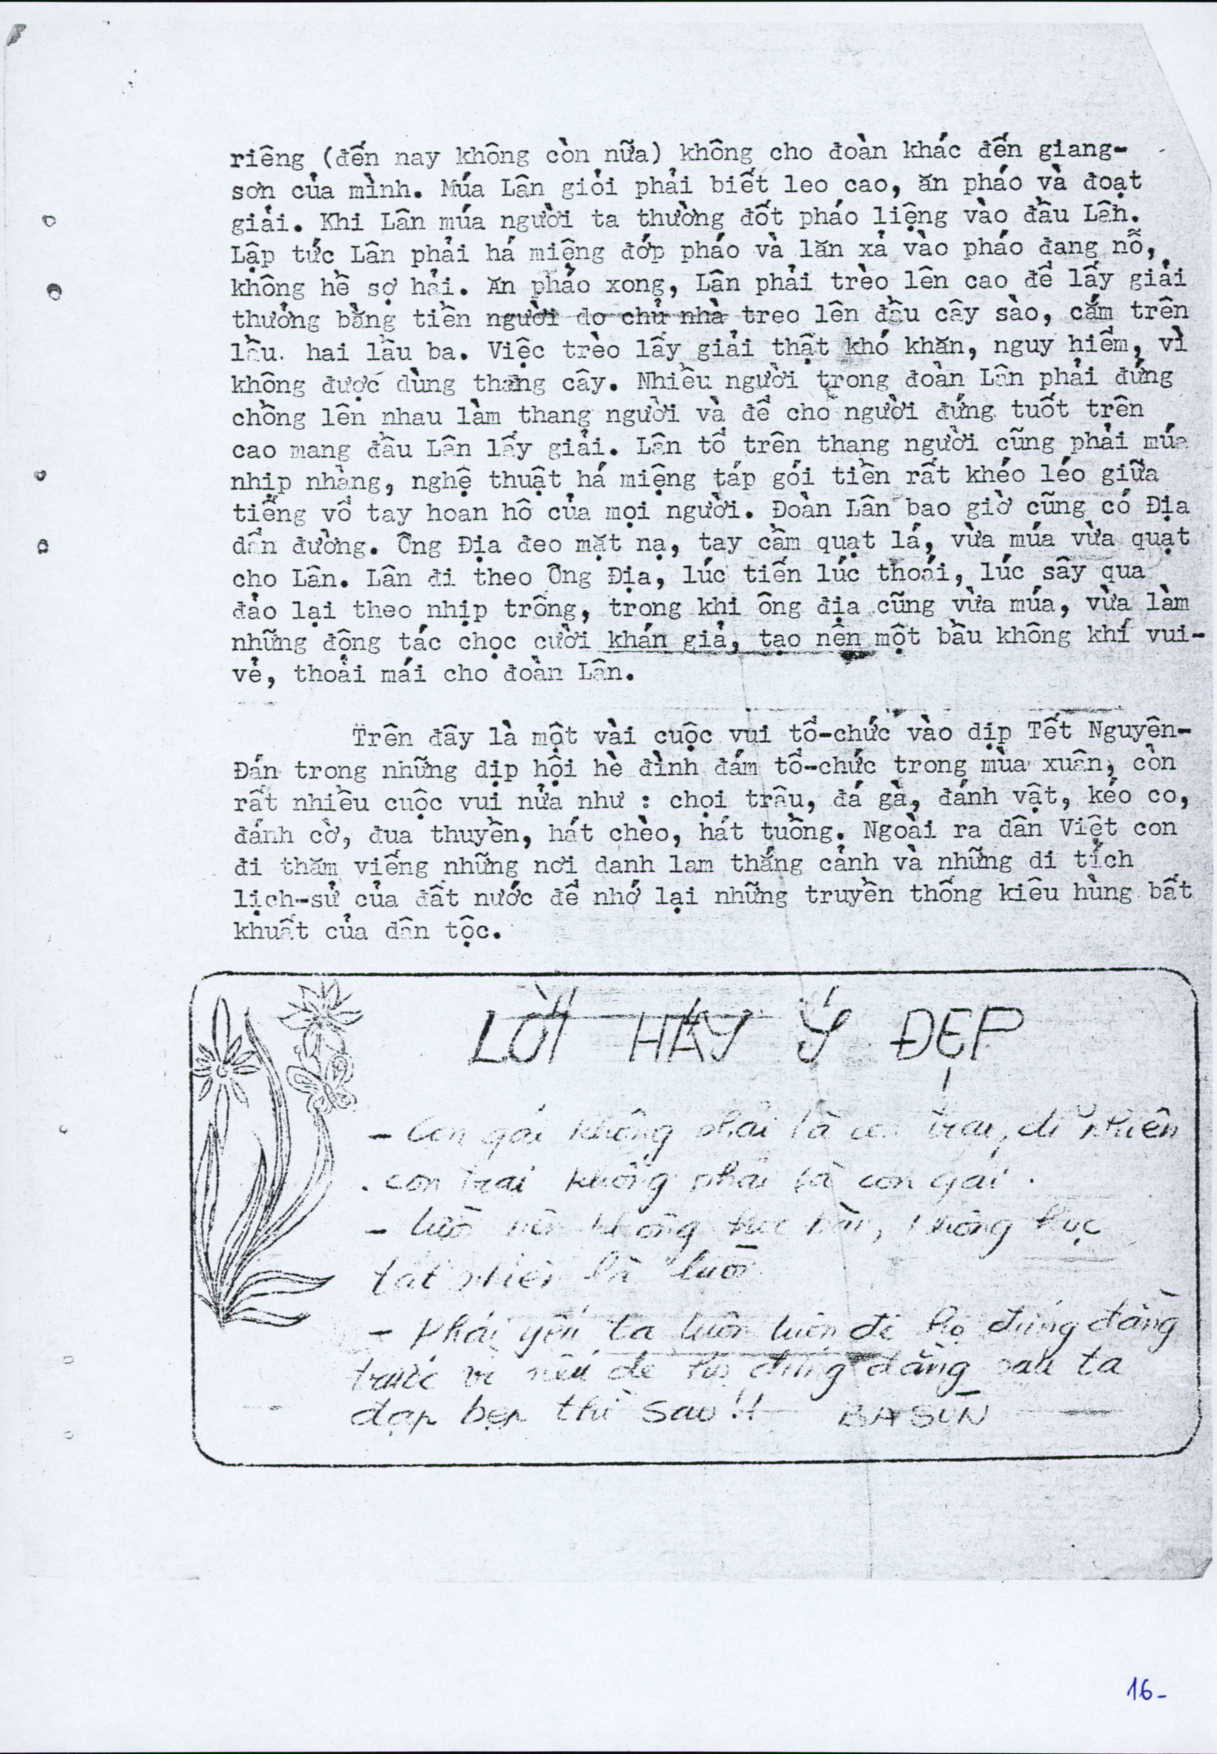 riêng (đến nay không còn nữa) không cho đoàn khác đến giang-
sơn của mình. Múa Lân giỏi phải biết leo cao, ăn pháo và đoạt
giải. Khi Lân múa người ta thường đốt pháo liệng vào đầu Lân.
Lập tức Lân phải há miệng đớp pháo và lăn xả vào pháo đang nỗ,
không hề sợ hải. Ăn pháo xong, Lân phải trèo lên cao để lấy giải
thưởng bằng tiền người do chủ nhà treo lên đầu cây sào, cắm trên
lầu hai lầu ba. Việc trèo lấy giải thật khó khăn, nguy hiểm, vì
không được dùng thang cây. Nhiều người trong đoàn Lân phải đứng
chồng lên nhau làm thang người và để cho người đứng tuốt trên
cao mang đầu Lân lấy giải. Lân tổ trên thang người cũng phải múa
nhịp nhàng, nghệ thuật há miệng táp gói tiền rất khéo léo giữa
tiếng vổ tay hoan hô của mọi người. Đoàn Lân bao giờ cũng có Địa
dẩn đường. Ông Địa đeo mặt nạ, tay cầm quạt lá, vừa múa vừa quạt
cho Lân. Lân đi theo Ông Địa, lúc tiến lúc thoái, lúc sây qua
đảo lại theo nhịp trống, trong khi ông địa cũng vừa múa, vừa làm
những động tác chọc cười khán giả, tạo nên một bầu không khí vui-
vẻ, thoải mái cho đoàn Lân.
Trên đây là một vài cuộc vui tổ-chức vào dịp Tết Nguyên-
Đán trong những dịp hội hè đình đám tổ-chức trong mùa xuân, còn
rất nhiều cuộc vui nửa như : chọi trâu, đá gà, đánh vật, kéo co,
đánh cờ, đua thuyền, hát chèo, hát tuồng. Ngoài ra dân Việt con
đi thăm viếng những nơi danh lam thắng cảnh và những di tích
lịch-sử của đất nước để nhớ lại những truyền thống kiêu hùng bất
khuất của dân tộc.
LỜI HAY Ý ĐẸP
- Con gái không phải là con trai, dĩ nhiên
con trai không phải là con gái.
- không không
tất nhiên là
- Phái yếu ta luôn luôn để họ đứng đằng
trước vì nếu để họ đứng đằng sau ta
đạp bẹp thì sao !!  BA SÙN
16-